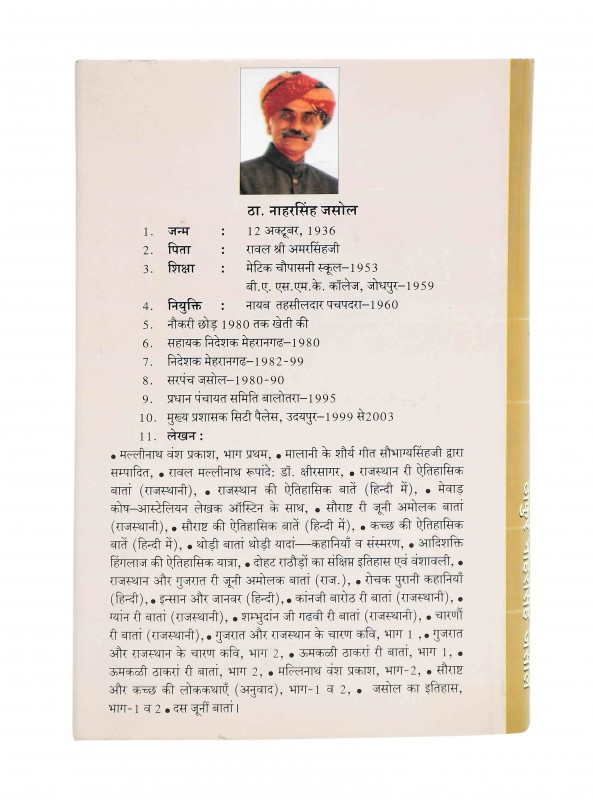 ठा. नाहरसिंह जसोल
1. जन्म : 12 अक्टूबर, 1936
2. पिता : रावल श्री अमरसिंहजी
3. शिक्षा : मेटिक चौपासनी स्कूल–1953
बी.ए. एस.एम.के. कॉलेज, जोधपुर–1959
4. नियुक्ति : नायब तहसीलदार पचपदरा–1960
5. नौकरी छोड़ 1980 तक खेती की
6. सहायक निदेशक मेहरानगढ–1980
7. निदेशक मेहरानगढ–1982-99
8. सरपंच जसोल–1980-90
9. प्रधान पंचायत समिति बालोतरा–1995
10. मुख्य प्रशासक सिटी पैलेस, उदयपुर–1999 से2003
11. लेखन :
• मल्लीनाथ वंश प्रकाश, भाग प्रथम, • मालानी के शौर्य गीत सौभाग्यसिंहजी द्वारा
सम्पादित, • रावल मल्लीनाथ रूपांदे: डॉ. क्षीरसागर, • राजस्थान री ऐतिहासिक
बातां (राजस्थानी), • राजस्थान की ऐतिहासिक बातें (हिन्दी में), • मेवाड़
कोष–आस्टेलियन लेखक ऑस्टिन के साथ, • सौराष्ट री जूनी अमोलक बातां
(राजस्थानी), • सौराष्ट की ऐतिहासिक बातें (हिन्दी में), • कच्छ की ऐतिहासिक
बातें (हिन्दी में), • थोड़ी बातां थोड़ी यादां—कहानियाँ व संस्मरण, • आदिशक्ति
हिंगलाज की ऐतिहासिक यात्रा, • दोहट राठौड़ों का संक्षिप्त इतिहास एवं वंशावली, •
राजस्थान और गुजरात री जूनी अमोलक बातां (राज.), • रोचक पुरानी कहानियाँ
(हिन्दी), • इन्सान और जानवर (हिन्दी), • कांनजी बारोठ री बातां (राजस्थानी), •
ग्यांन री बातां (राजस्थानी), • शम्भुदांन जी गढवी री बातां (राजस्थानी), • चारणौं
री बातां (राजस्थानी), • गुजरात और राजस्थान के चारण कवि, भाग 1 , • गुजरात
और राजस्थान के चारण कवि, भाग 2, • ऊमकळी ठाकरां री बातां, भाग 1, •
ऊमकळी ठाकरां री बातां, भाग 2, • मल्लिनाथ वंश प्रकाश, भाग-2, • सौराष्ट
और कच्छ की लोककथाएँ (अनुवाद), भाग-1 व 2, • जसोल का इतिहास,
भाग-1 व 2 • दस जूनीं बातां।
ठाकुर नाहरसिंह जसोल